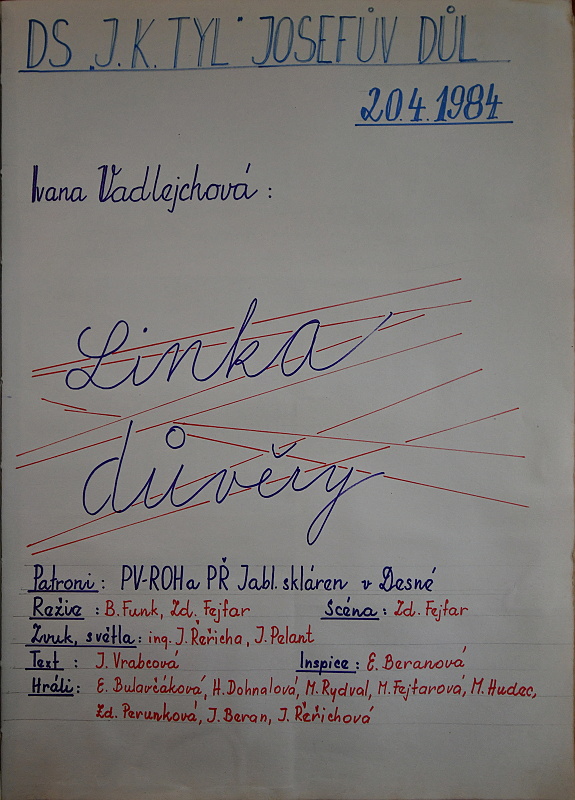 DS "J.K. TYL" JOSEFŮV DŮL
20.4.1984
Ivana Vadlejchová :
Linka
důvěry
Patroni : PV-ROH a PŘ Jabl. skláren v Desné
Režie : B. Funk, Zd. Fejfar Scéna : Zd. Fejfar
Zvuk, světla : ing. J. Řeřicha, J. Pelant
Text : J. Vrabcová Inspice : E. Beranová
Hráli : E. Bulavčáková, H. Dohnalová, M. Rydval, M. Fejfarová, M. Hudec,
Zd. Perunková, J. Beran, J. Řeřichová